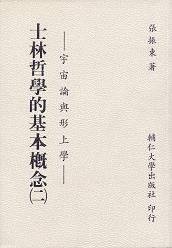 張振東著
士林哲學的基本概念(二)
——宇宙論與形上學——
輔仁大學出版社 印行